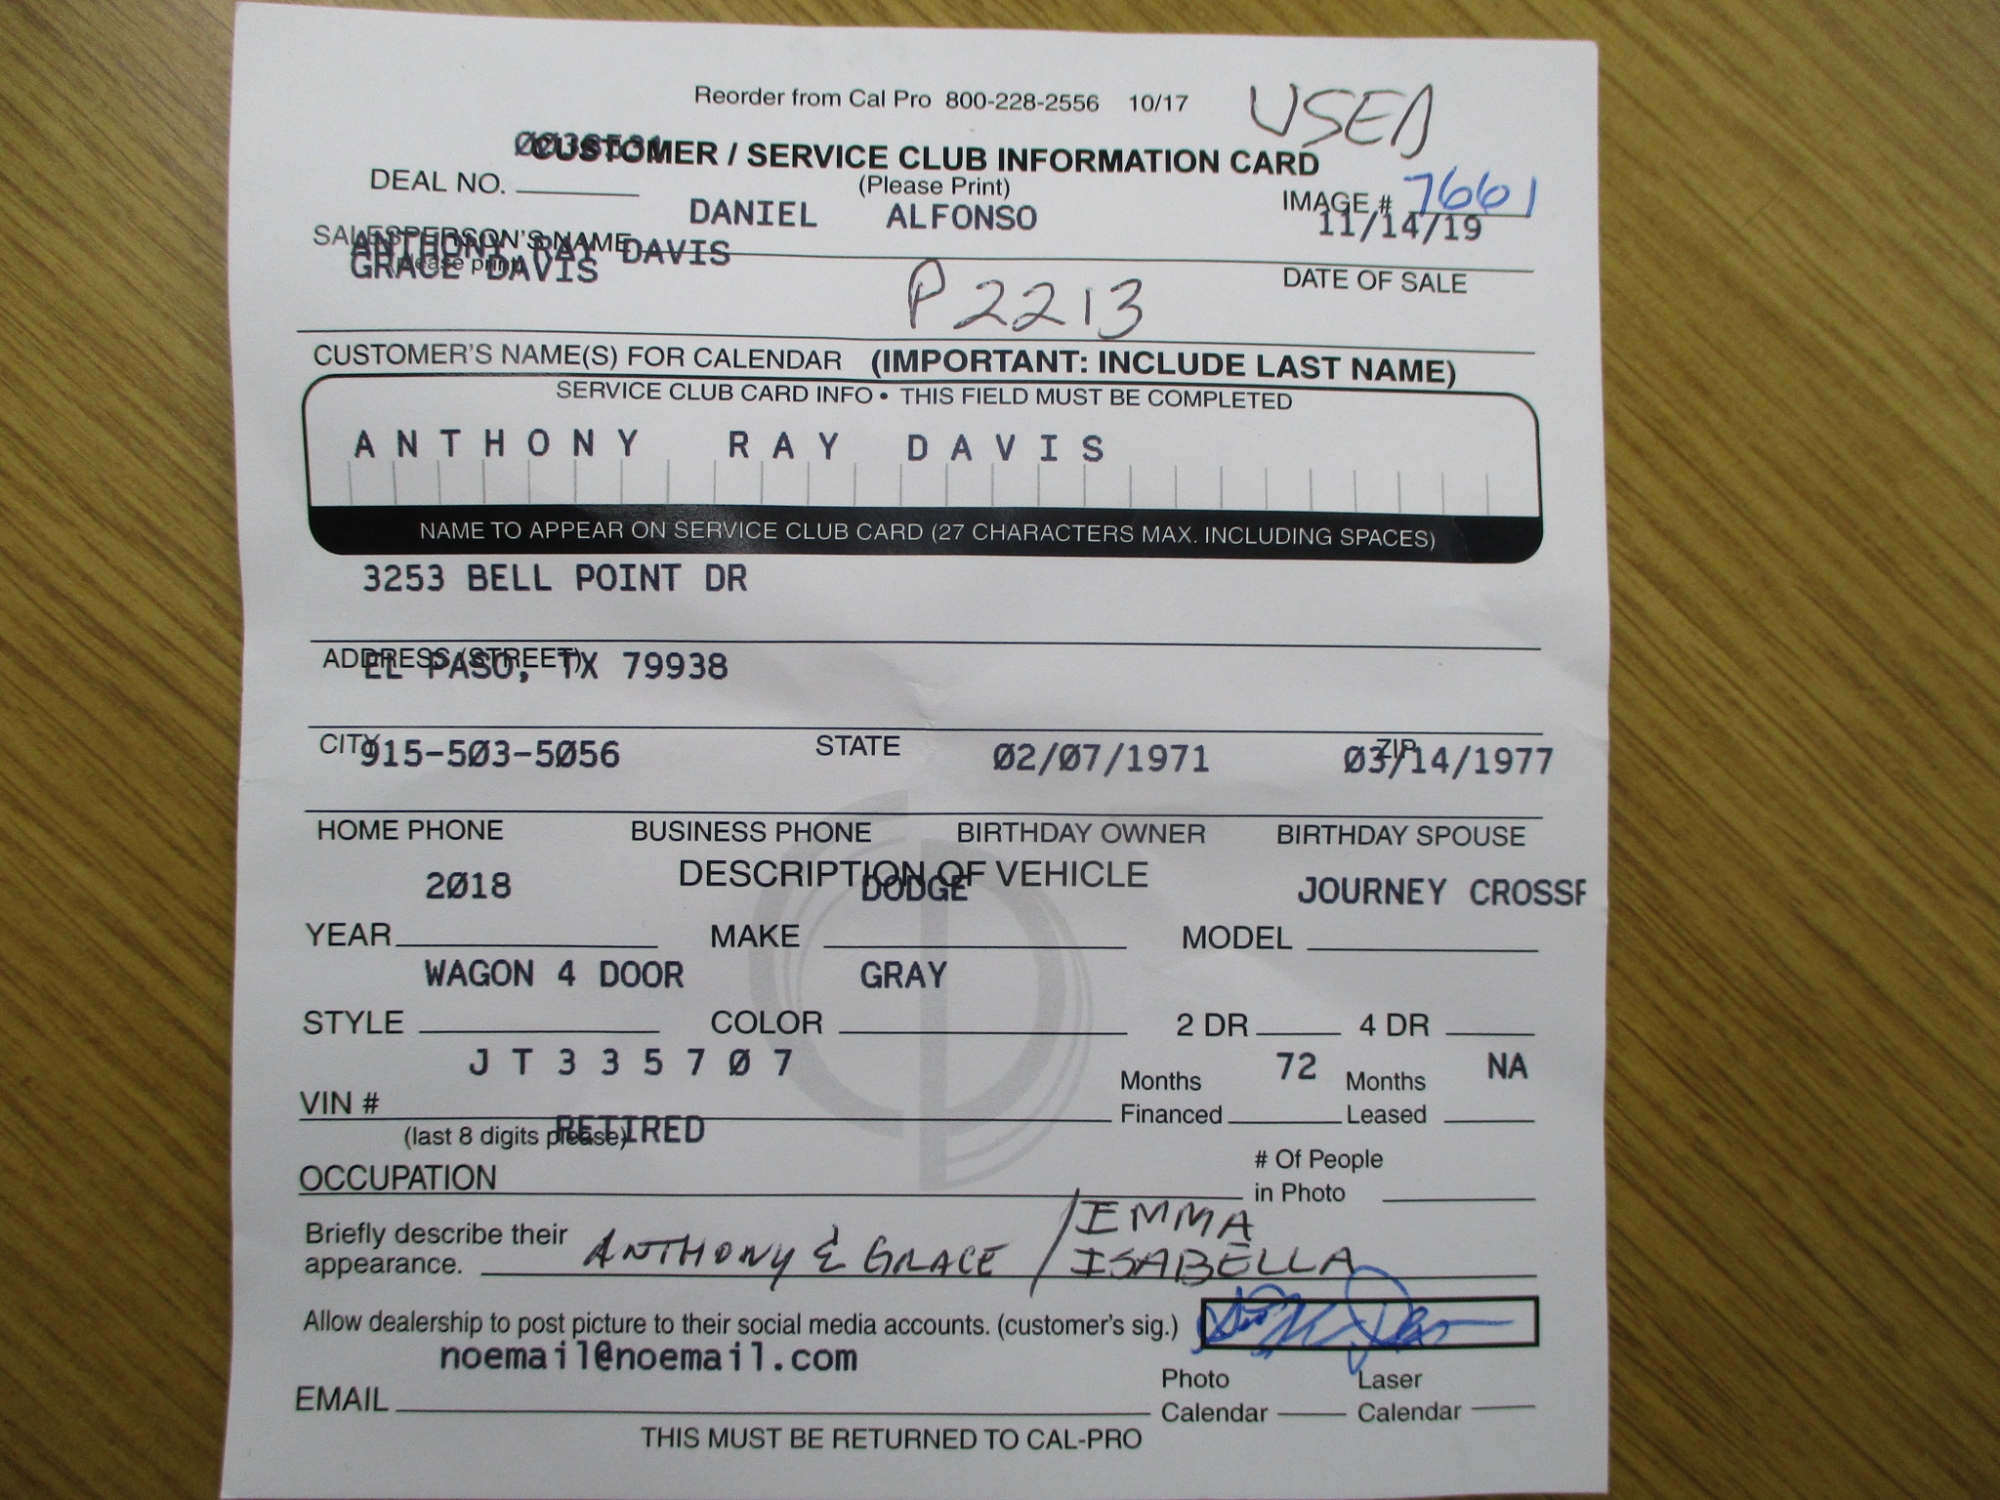 Reorder from Cal Pro 800-228-2556 10/17
USED
CUSTOMER / SERVICE CLUB INFORMATION CARD
DEAL NO.
(Please Print)
IMAGE # 7661
DANIEL ALFONSO
11/14/19
SALESPERSON'S NAME
(please print)
ANTHONY RAY DAVIS
GRACE DAVIS
DATE OF SALE
P2213
CUSTOMER'S NAME(S) FOR CALENDAR (IMPORTANT: INCLUDE LAST NAME)
SERVICE CLUB CARD INFO • THIS FIELD MUST BE COMPLETED
ANTHONY RAY DAVIS
NAME TO APPEAR ON SERVICE CLUB CARD (27 CHARACTERS MAX. INCLUDING SPACES)
3253 BELL POINT DR
ADDRESS (STREET)
EL PASO, TX 79938
CITY STATE ZIP
915-503-5056 02/07/1971 03/14/1977
HOME PHONE BUSINESS PHONE BIRTHDAY OWNER BIRTHDAY SPOUSE
DESCRIPTION OF VEHICLE
2018 DODGE JOURNEY CROSSF
YEAR MAKE MODEL
WAGON 4 DOOR GRAY
STYLE COLOR 2 DR 4 DR
J T 3 3 5 7 0 7
VIN #
(last 8 digits please)
Months Financed 72 Months Leased NA
RETIRED
OCCUPATION
# Of People in Photo
Briefly describe their appearance. ANTHONY & GRACE / EMMA
ISABELLA
Allow dealership to post picture to their social media accounts. (customer's sig.)
noemail@noemail.com
EMAIL
Photo Calendar Laser Calendar
THIS MUST BE RETURNED TO CAL-PRO